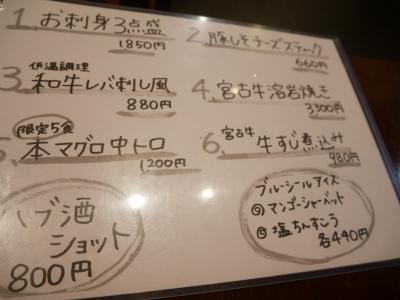 1 お刺身3点盛
1850円
2 豚しそチーズスティック
660円
3 低温調理
和牛レバ刺し風
880円
4 宮古牛溶岩焼き
3300円
限定5食
5 本マグロ中トロ
1,200円
6 宮古牛
牛すじ煮込み
980円
ハブ酒
ショット
800円
ブルーシールアイス
◎マンゴーシャーベット
◎塩ちんすこう
各490円